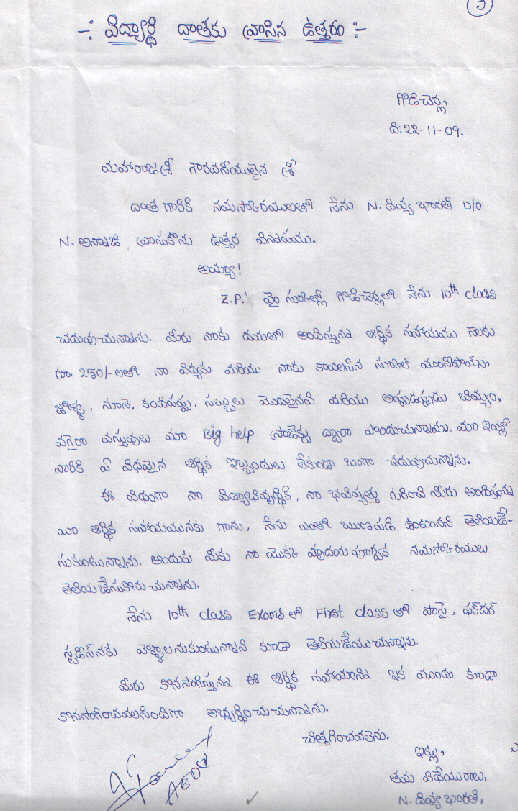 3
-: విద్యార్థి దాతకు వ్రాసిన ఉత్తరం :-
గొడిచెర్ల
ది: 22-11-09.
మహారాజశ్రీ గౌరవనీయులైన శ్రీ
దాత గారికి నమస్కారములతో నేను N. దివ్య భారతి D/O
N. అప్పారావు వ్రాసుకొను ఉత్తర విషయము.
అయ్యా!
Z.P.! హై స్కూల్ గొడిచెర్లలో నేను 10th class
చదువుచున్నాను. మీరు నాకు దయతో అందిస్తున్న ఆర్థిక సహాయము
రూ 250/-లతో నా విద్యను మరియు నాకు కావలసిన స్కూల్ యూనిఫారమ్
, నూనె, కందిపప్పు, సబ్బులు మొదలైనవి మరియు అప్పుడప్పుడు బియ్యం,
వగైరా వస్తువులు మా big help సొసైటీ ద్వారా పొందుచున్నాము. మా ఇంట్లో
నాకు ఏ విధమైన ఆర్థిక ఇబ్బందులు లేకుండా బాగా చదువుచున్నాను.
ఈ విధంగా నా విద్యాభివృద్ధికి, నా భవిష్యత్తు గురించి మీరు అందిస్తున్న
ఆర్థిక సహాయమునకు గాను, నేను ఎంతో ఋణపడి ఉంటానని తెలియజే-
సుకుంటున్నాను. అందుకు మీకు నా యొక్క హృదయ పూర్వక నమస్కారములు
తెలియజేసుకొనుచున్నాను.
నేను 10th class Exams లో First class లో పాసై, ఫర్దర్
స్టడీస్‌కు వెళ్ళాలనుకుంటున్నానని కూడా తెలియజేయుచున్నాను.
మీరు కొనసాగిస్తున్న ఈ ఆర్థిక సహాయాన్ని ఇక ముందు కూడా
కొనసాగించవలసిందిగా అభ్యర్థించుచున్నాను.
చిత్తగించవలెను.
ఇట్లు,
తమ విధేయురాలు,
N. దివ్య భారతి,